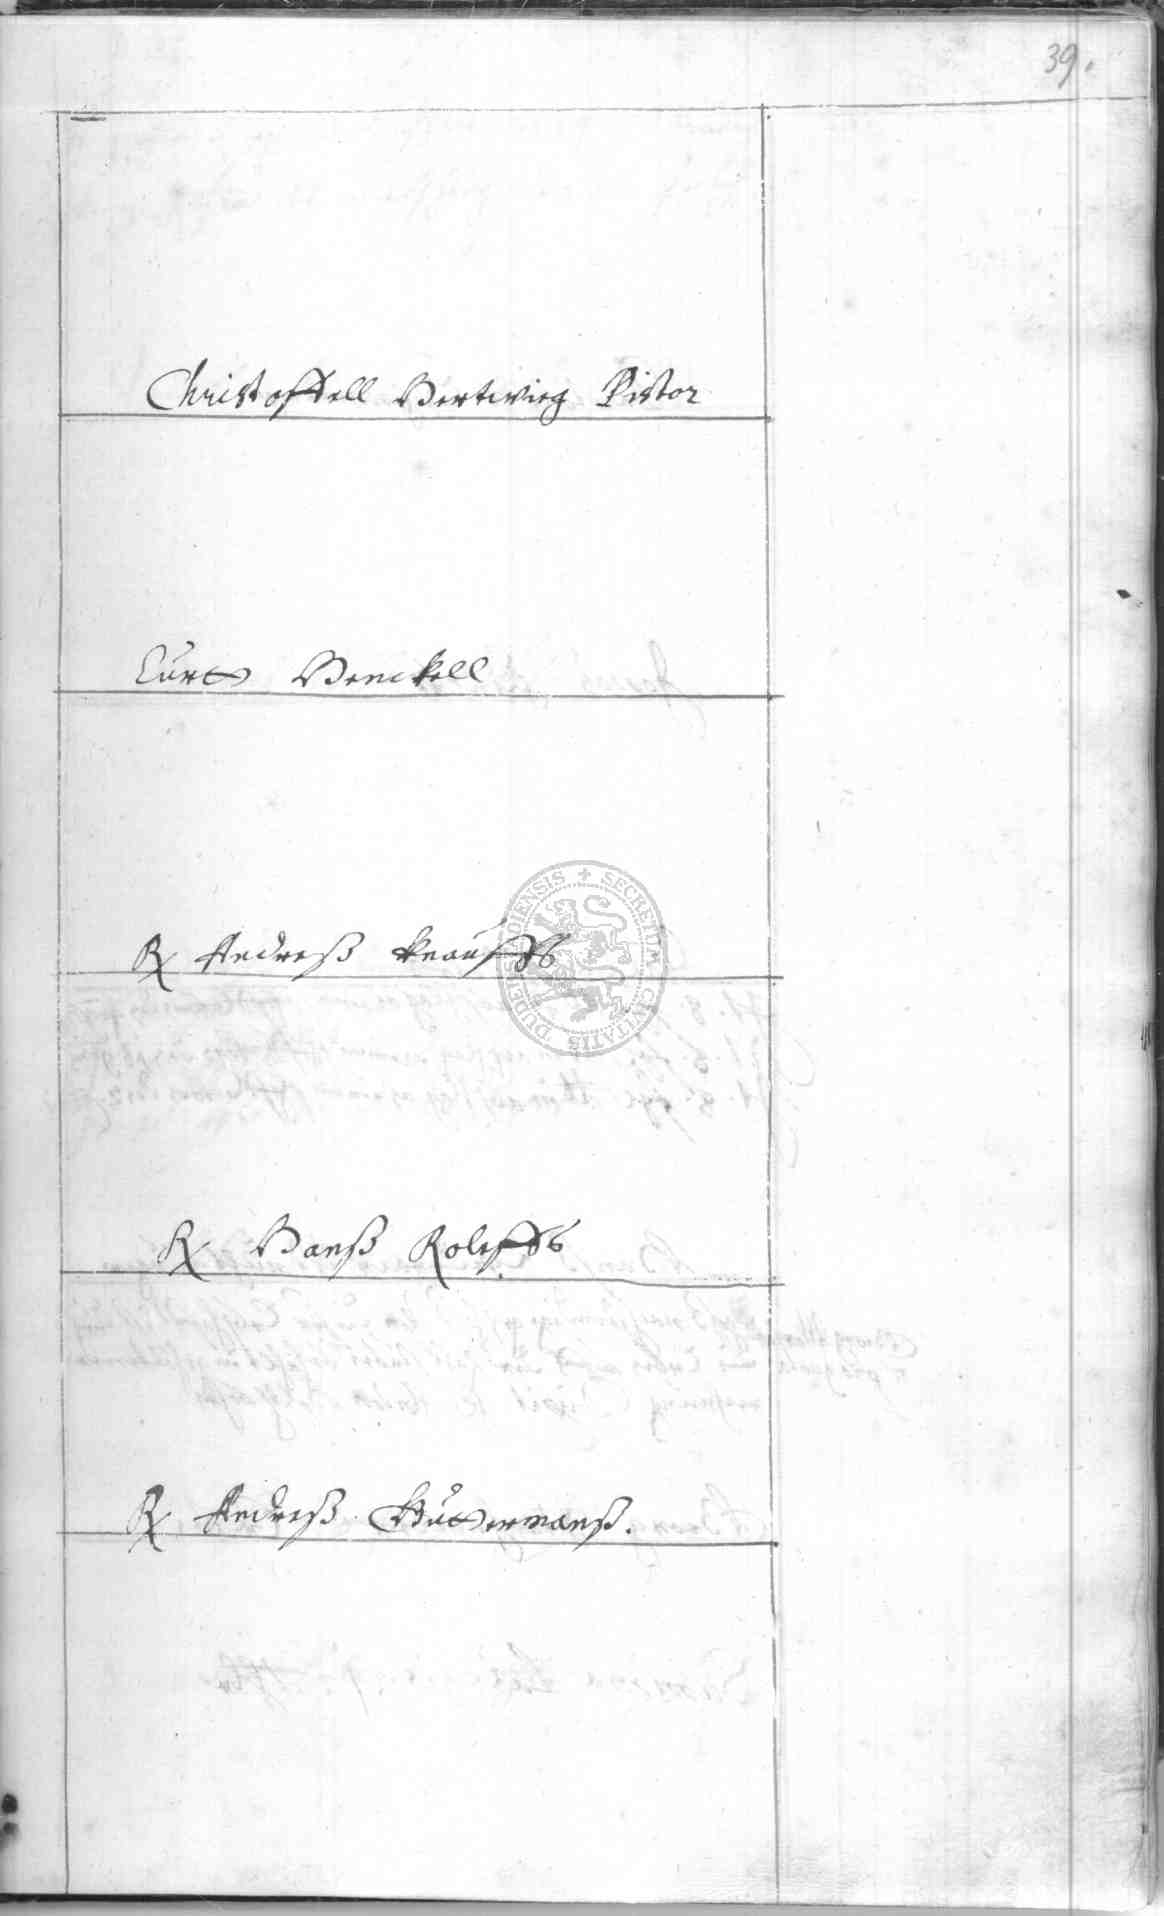 39.
Christoffell Hertwieg Pistor
Curt Henckell
R Andreß Knauffs
R Hanß Roleffs
R Andreß
SECRETUM CIVITATIS DUDERSTADIENSIS